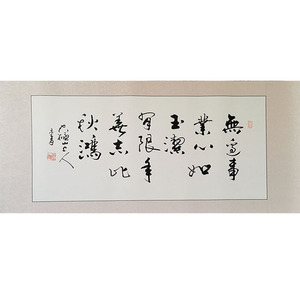 無邊事
業心如
玉潔
有限年
華志比
秋鴻